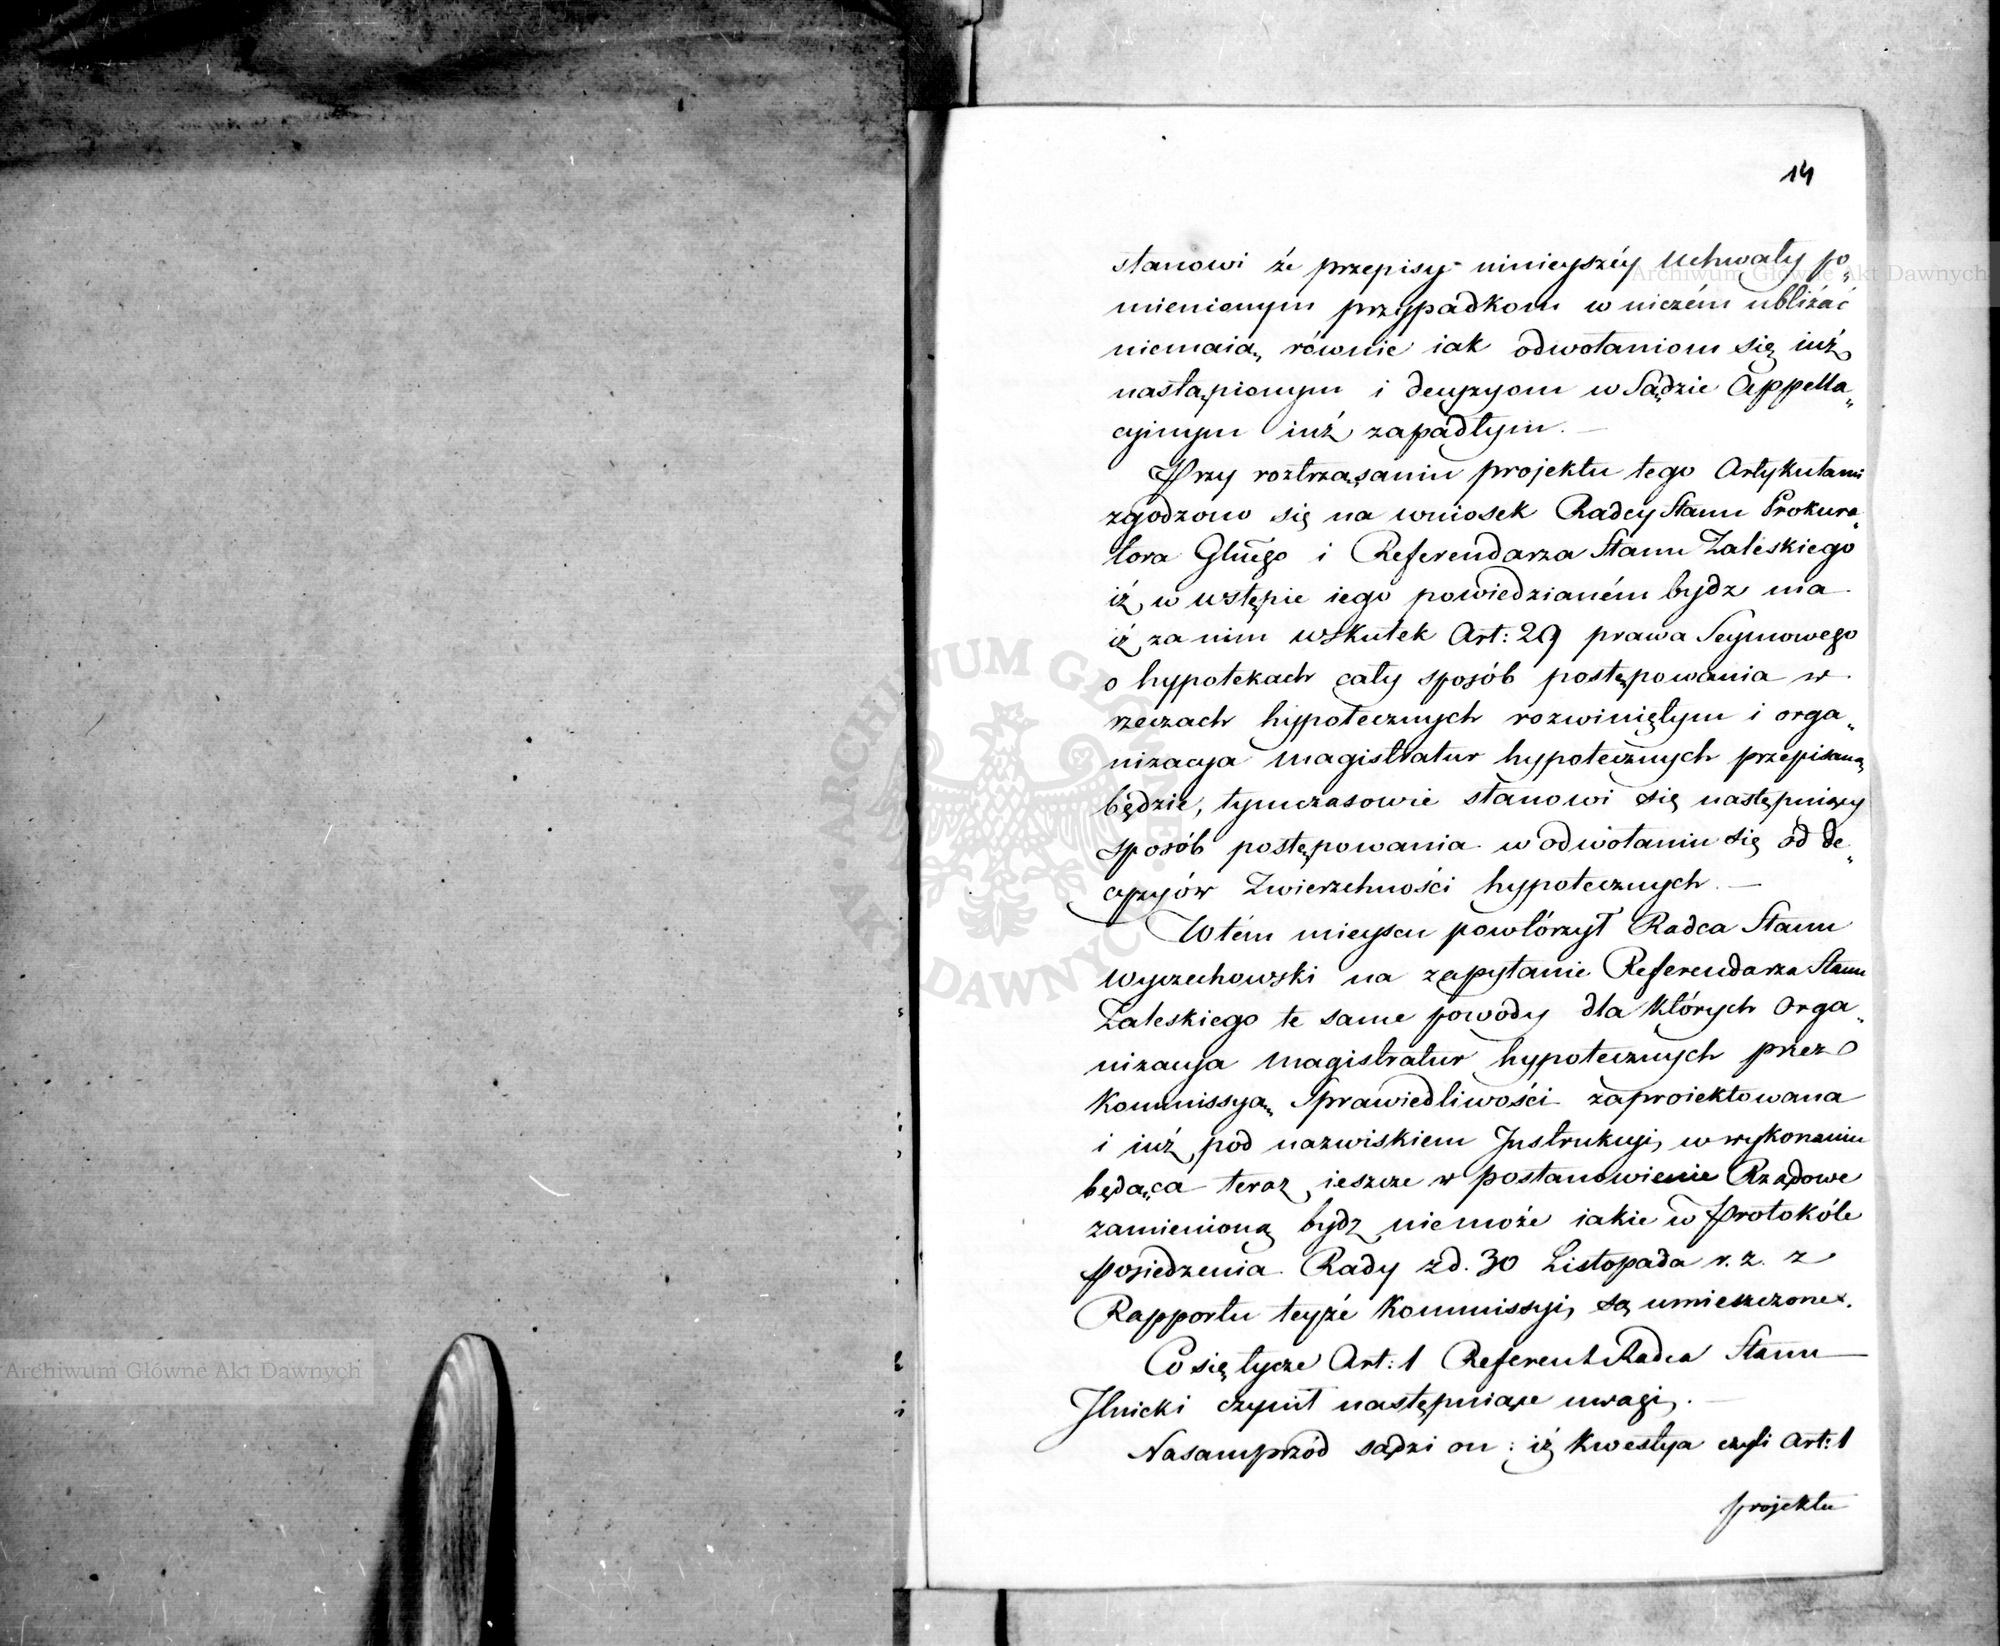 14
stanowi że przepisy ninieyszéy Uchwały po„
mienionym przypadkom w niczém ubliżać
niemaią, równie iak odwołaniom się iuż
nastąpionym i decyzyom w Sądzie Appella„
cyinym iuż zapadłym. —
Przy roztrząsaniu projektu tego Artykułami
zgodzono się na wniosek Radcy Stanu Prokura„
tora Glnego i Referendarza Stanu Zaleskiego
iż w wstępie iego powiedzianém bydz ma
iż zanim wskutek Art: 29 prawa Seymowego
o hypotekach cały sposób postępowania w
rzeczach hypotecznych rozwiniętym i orga„
nizacya magistratur hypotecznych przepisaną
będzie, tymczasowie stanowi się następuiący
sposób postępowania w odwołaniu się od de„
cyzyów Zwierzchności hypotecznych. —
W tém mieyscu powtórzył Radca Stanu
Wyczechowski na zapytanie Referendarza Stanu
Zaleskiego te same powody dla których Orga„
nizacya Magistratur hypotecznych przez
Kommissyą Sprawiedliwości zaproiektowana
i iuż pod nazwiskiem Instrukcyi w wykonaniu
będąca teraz ieszcze w postanowienie Rządowe
zamienioną bydz niemoże iakie w Protokóle
Posiedzenia Rady z d. 30 Listopada r. z. z
Rapportu teyże Kommissyi są umieszczone.
Co się tycze Art: 1 Referent Radca Stanu
Ilnicki czynił następuiące uwagi. —
Nasamprzód sądzi on: iż kwestya czyli Art: 1
projektu
Archiwum Główne Akt Dawnych
Archiwum Główne Akt Dawnych
ARCHIWUM GŁÓWNE AKT DAWNYCH